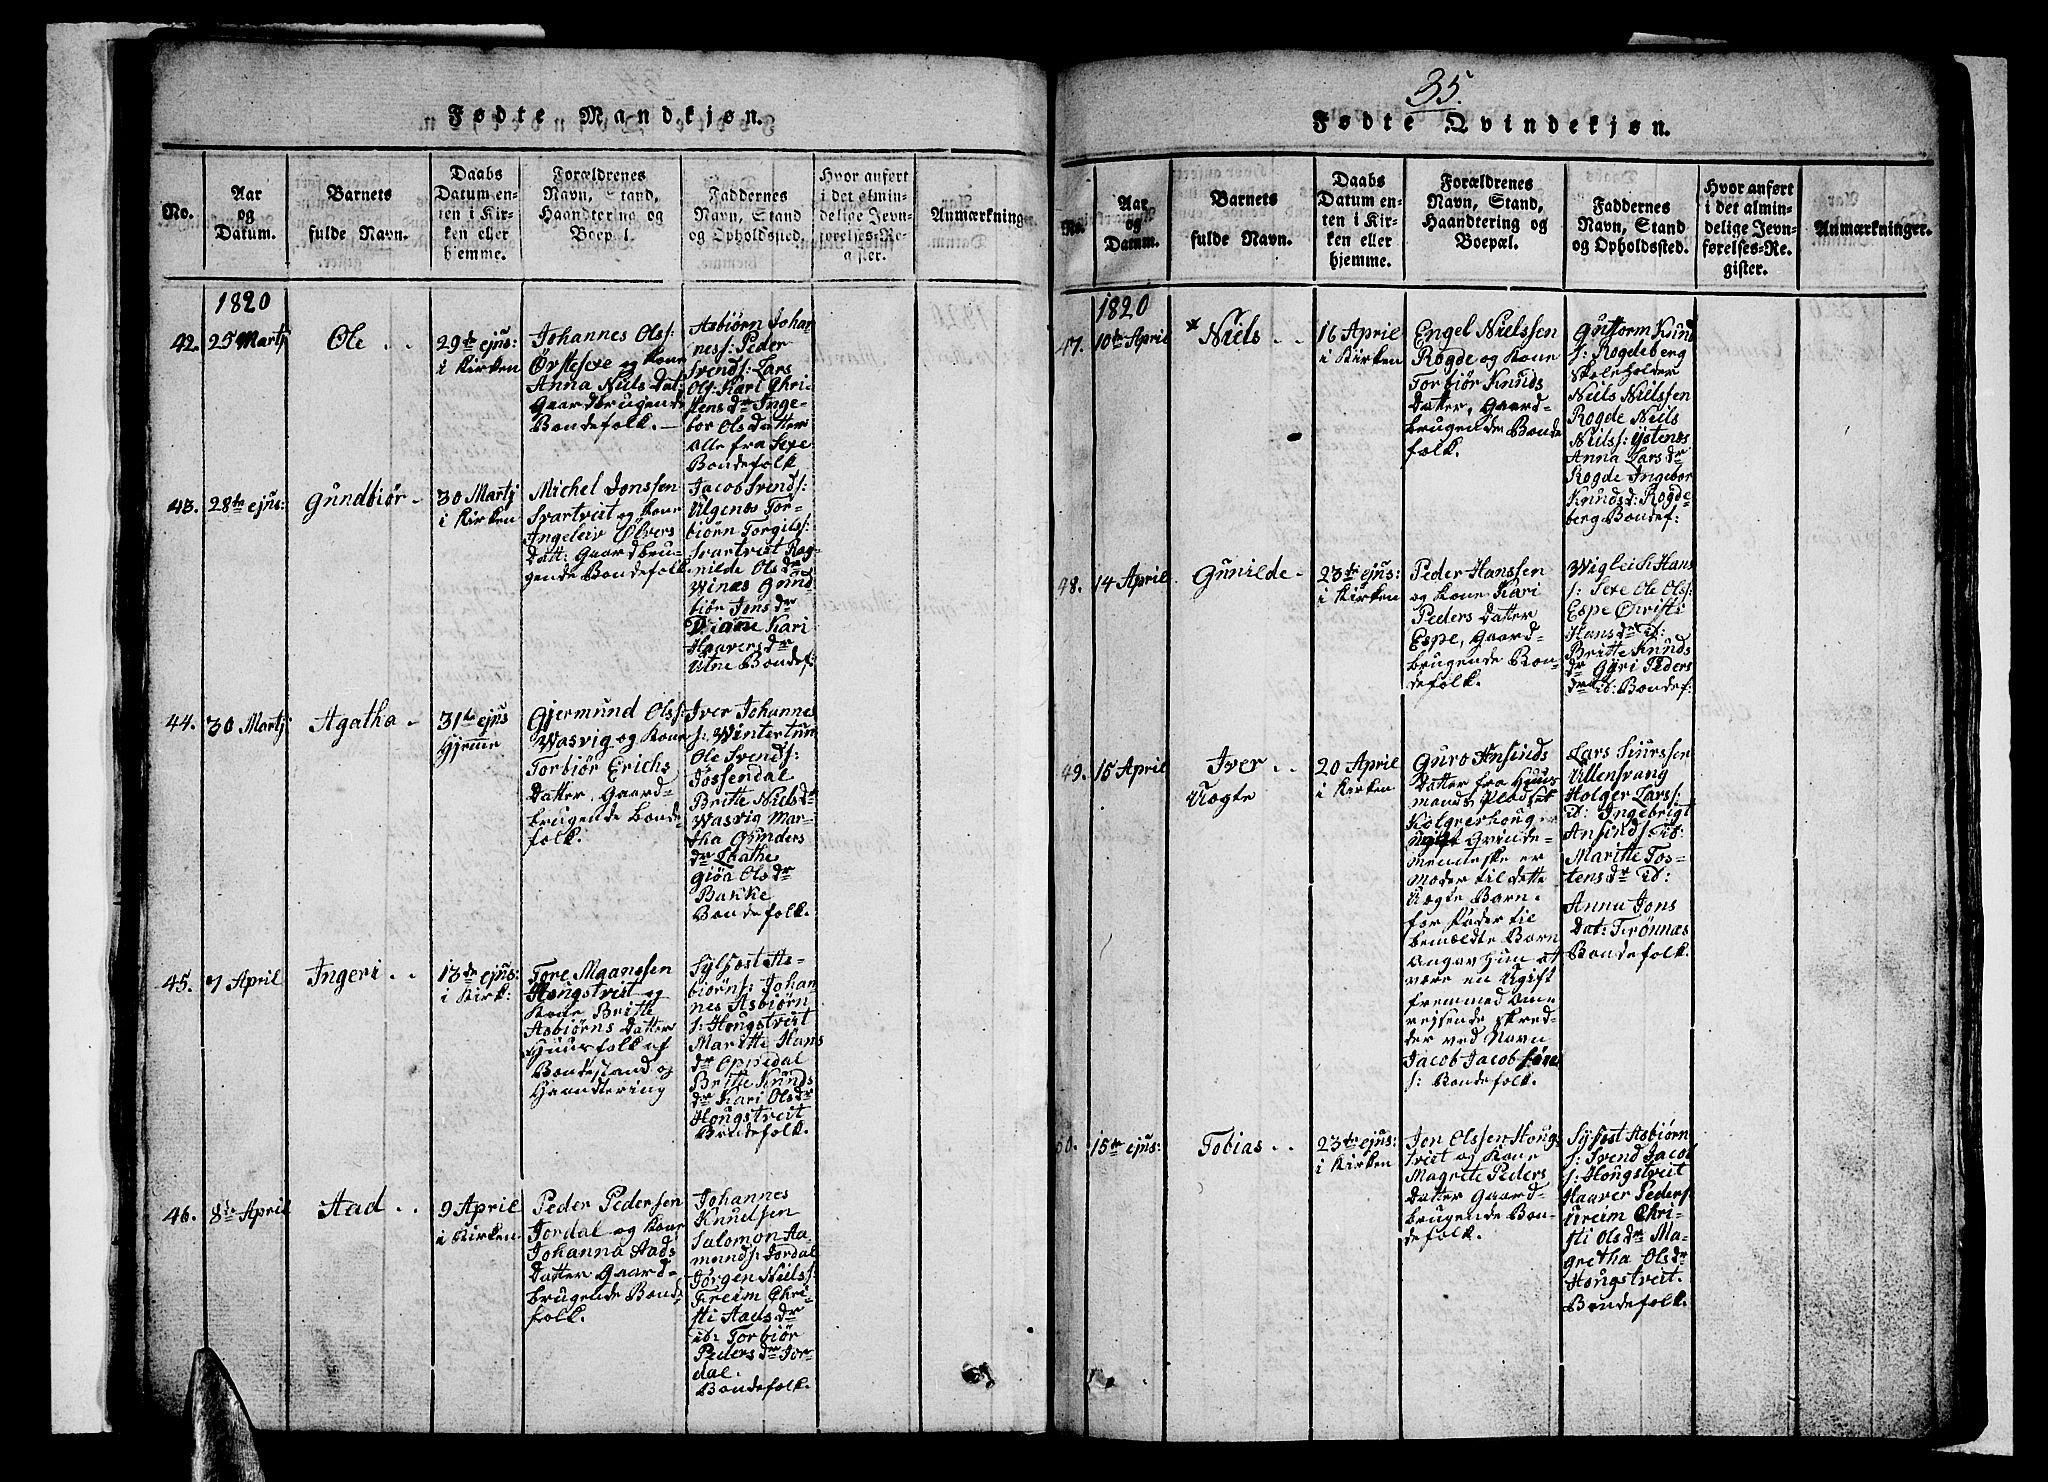 35.
Fødte Mandkjøn.
No.
Aar
og
Datum.
Barnets
fulde Navn.
Daabs
Datum en-
ten i Kir-
ken eller
hjemme.
Forældrenes
Navn, Stand,
Haandtering og
Boepæl.
Faddernes
Navn, Stand
og Opholdssted.
Hvor anført
i det almin-
delige Jevn-
førelses-Re-
gister.
Anmærkninger
1820
42.
25 Martj
Ole . .
29te ejus:
i Kirken
Johannes Ols:
og Kone
Anna Niels Dat:
Gaardbrugende
Bondefolk. —
Asbiørn Johan
nes: Peder
Svends: Lars
Ols: Kari Chri-
stensdr Inge-
bor Olsdatter
alle fra Sexe
Bondefolk
43.
28te ejus:
Gundbiør -
30 Martj
i Kirken
Michel Jonssen
Svartveit og Kone
Ingeleiv Ølvers
Datt: Gaardbru-
gende Bondefolk.
Jacob Svends:
Ulgenæs Tor-
biørn Torgils:
Svartveit Rag-
nilde Olsdr
Winæs Gund
biør Jonsdr
Kari
Haaversdr
Utne Bondef:
44.
30 Martj
Agatha -
31te ejus
Hjemme
Gjermund Ols:
Wasvig og Kone
Torbiør Erichs
Datter, Gaard-
brugende Bonde
folk.
Iver Johannes
s: Wintertun
Ole Svends:
Jossendal
Britte Nielsdr
Wasvig Mar-
tha Gunders
dr Lhathe
Giøa Olsdr
Bakke
Bondefolk.
45.
7 April
Ingeri . .
13de ejus:
i Kirk:
Tore Maanssen
Hougstveit og
Kone Britte
Asbiørns Datter
Huusfolk af
Bondestand og
Haandtering
Sylfest As-
biørns: Johan
nes Asbiørn
s: Hougstveit
Maritte Hans
dr Oppedal
Britte Knuds
dr Kari Olsdr
Hougstveit
Bondefolk.
46.
8de April
Aad . .
9 April
i Kirken
Peder Pedersen
Jordal og Kone
Johanna Aads
Datter Gaard-
brugende Bonde
folk.
Johannes
Knudsen
Salomon Aa-
munds: Jordal
Jørgen Niels:
Freim Chri-
sti Aadsdr
ib: Torbiør
Pedersdr Jor-
dal.
Bondefolk.
Fødte Qvindekjøn.
No.
Aar
og
Datum.
Barnets
fulde Navn.
Daabs
Datum en-
ten i Kir-
ken eller
hjemme.
Forældrenes
Navn, Stand,
Haandtering og
Boepæl.
Faddernes
Navn, Stand
og Opholdsted.
Hvor anført
i det almin-
delige Jevn-
førelses-Re-
gister.
Anmærkninger.
1820
47.
10de April
* Niels . .
16 April
i Kirken
Engel Nielssen
Rogde og Kone
Torbiør Knuds
Datter, Gaard-
brugende Bonde
folk.
Guttorm Knud
s: Rogdeberg
Skoleholder
Niels Nielssen
Rogde Niels
Niels: Ystenæs
Anna Larsdr
Rogde Ingebor
Knudsd: Rogde-
berg Bondef:
48.
14 April
Gunilde -
23de ejus:
i Kirken
Peder Hanssen
og Kone Kari
Peders Datter
Espe, Gaard-
brugende Bon-
defolk.
Wigleich Hans
s: Sexe Ole Ols:
Espe Christi
Hansdr ib:
Britte Knuds
dr Guri Peders
dr ib: Bondef:
49.
15 April
Iver . .
Uægte
20 April
i Kirken
Guro Ansinds
Datter fra Huus
mands Pladset
ugift Qvinde-
menneske er
Moder til dette
Uægte Barn.
for Fader til
bemældte Barn
Angav hun at
være en Ugift
fremmed Om-
reisende Skred-
der ved Navn
Jacob Jacob
s: Bondefolk.
Lars Siurssen
Ullensvang
Holger Lars:
ib: Ingebrigt
Ansinds: ib:
Maritte Tos-
tensdr ib:
Anna Jons
Dat: Trønnæs
Bondefolk.
50.
15te ejus:
Tobias . .
23de ejus:
i Kirken
Jon Olssen Houg
tveit og Kone
Magrete Peders
Datter Gaard-
brugende Bon-
defolk.
Sylfest Asbiørn
s: Svend Jacob
s: Hougstveit
Haaver Peders:
Ureim Chri-
sti Olsdr Ma-
gretha Olsdr
Hougstveit.
Bondefolk.